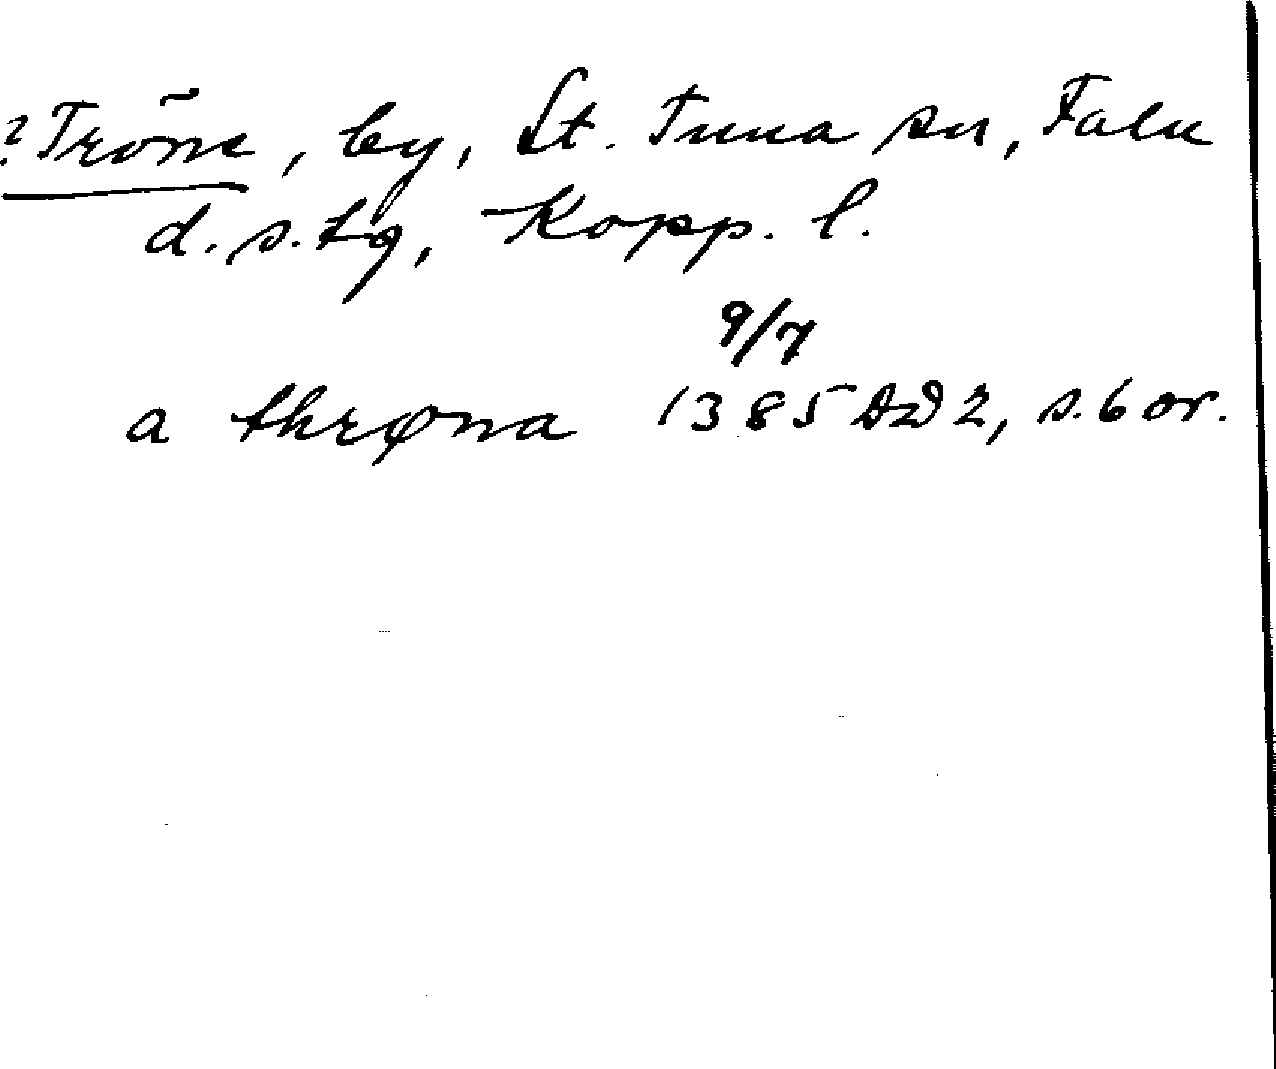 ? Tröne, by, St. Tuna sn, Falu
d. s. tg, Kopp. l.
9/7
a thrøna 1385 DD 2, s. 6 or.